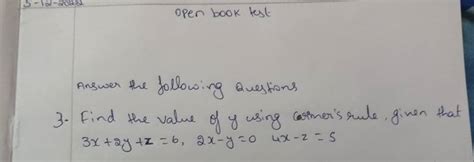 Open book test
Answer the following Questions
3. Find the value of y using rule, given that
3x+2y+z=6, 2x-y=0 4x-z=5